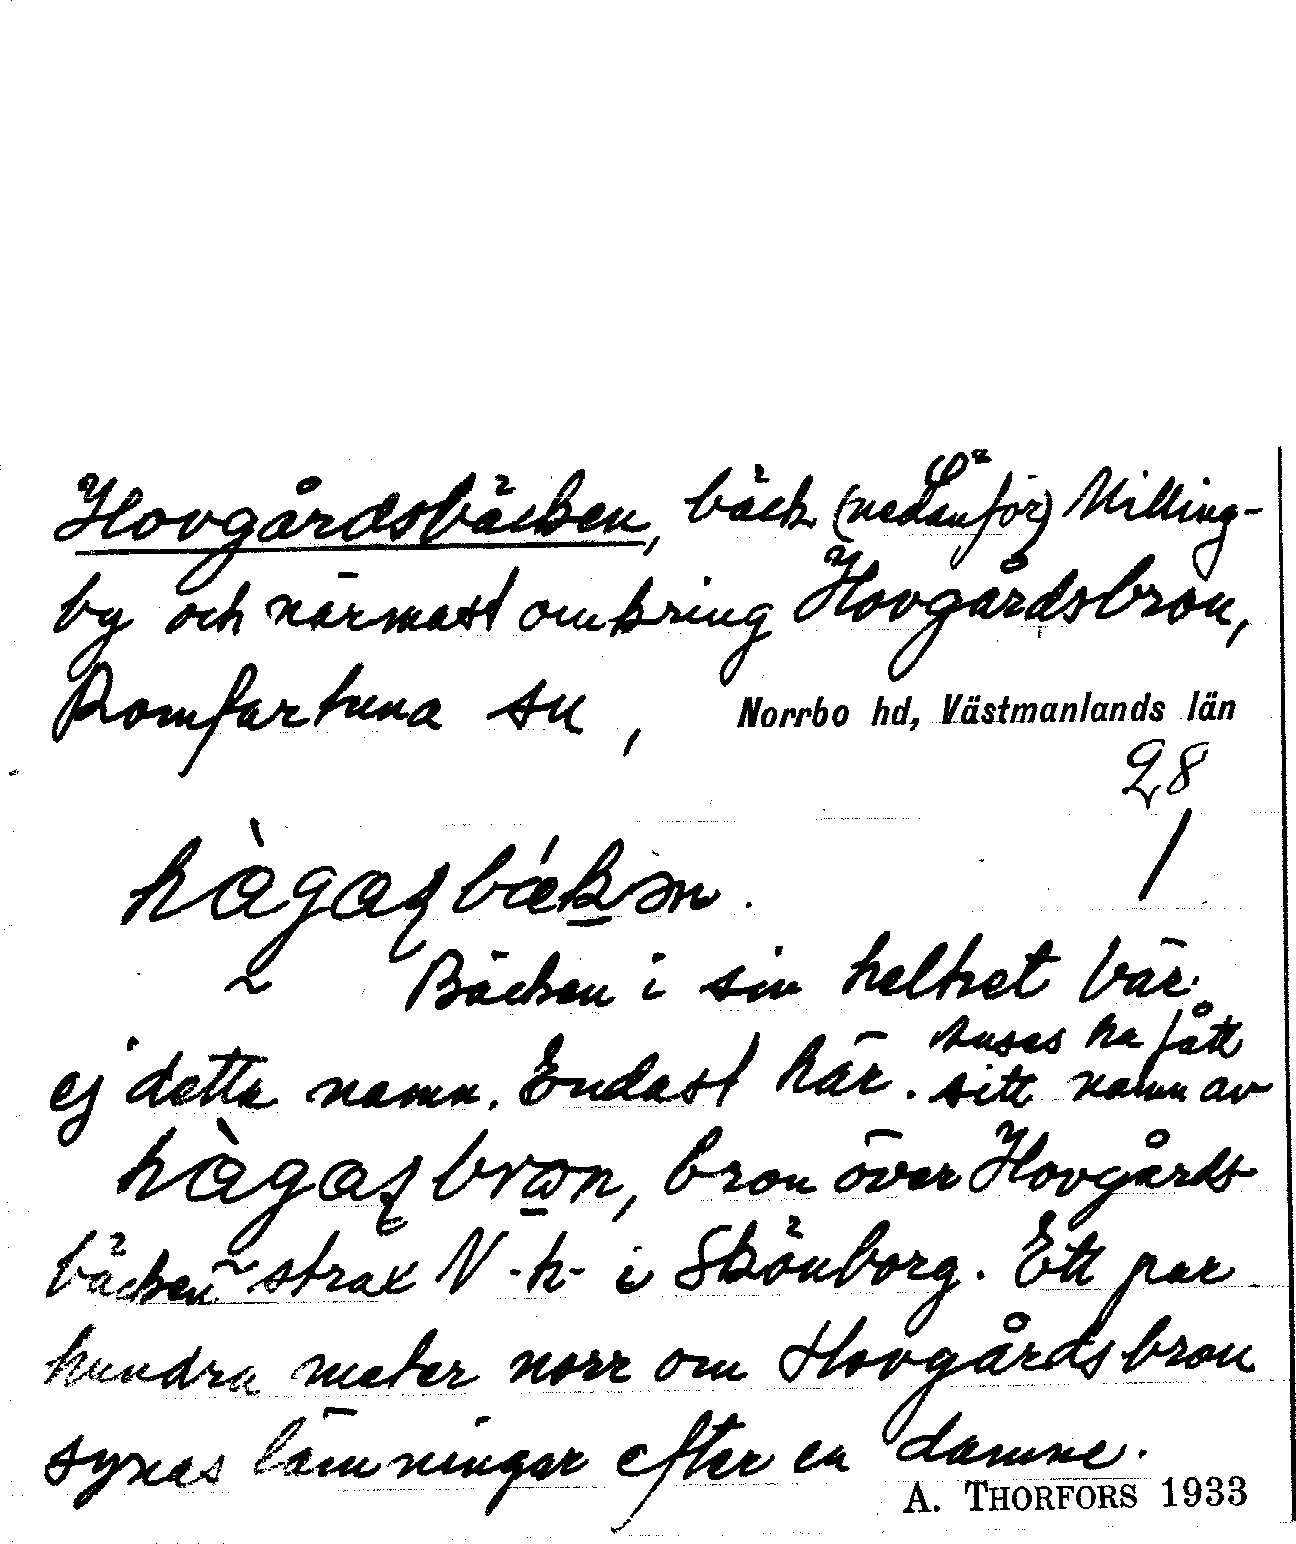 Hovgårdsbäcken, bäck (nedanför) Milling-
by och närmast omkring Hovgårdsbron,
Romfartuna sn, Norrbo hd, Västmanlands län
28
1
hàgaʂbǽkən.
Bäcken i sin helhet bär
ej detta namn. Endast här. Anses ha fått
sitt namn av
hàgaʂbrɷn, bron över Hovgårds-
bäcken strax N -h- i Skönborg. Ett par
hundra meter norr om Hovgårdsbron
synes lämningar efter en damme.
A. THORFORS 1933